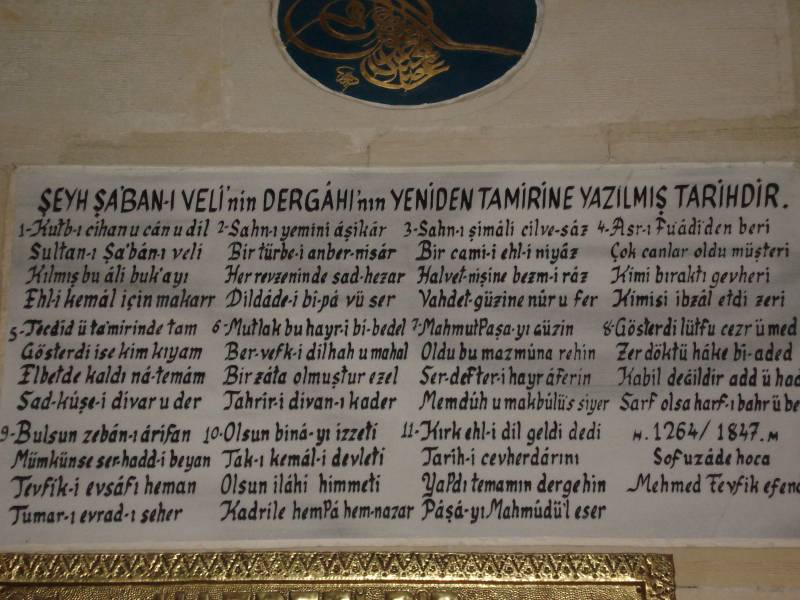 ŞEYH ŞA'BAN-I VELİ'nin DERGÁHI'nın YENİDEN TAMİRİNE YAZILMIŞ TARİHDİR.
1-Kutb-ı cihan u cán u dil
Sultan-ı Şa'bán-ı veli
Kılmış bu áli buk'ayı
Ehl-i kemál için makarr
2-Sahn-ı yemini áşikár
Bir türbe-i anber-nisár
Her revzeninde sad-hezar
Dildáde-i bi-pá vü ser
3-Sahn-ı şimáli cilve-sáz
Bir cami-i ehl-i niyáz
Halvet-nişine bezm-i ráz
Vahdet-güzine núr u fer
4-Asr-ı Fuádi'den beri
Çok canlar oldu müşteri
Kimi bıraktı gevheri
Kimisi ibzál etdi zeri
5-Tecdid ü ta'mirinde tam
Gösterdi ise kim kıyam
Elbetde kaldı ná-temám
Sad-kúşe-i divar u der
6-Mutlak bu hayr-i bi-bedel
Ber-vefk-i dilhah u mahal
Bir záta olmuştur ezel
Tahrir-i divan-ı kader
7-Mahmut Paşa-yı güzin
Oldu bu mazmúna rehin
Ser-defter-i hayr áferin
Memdúh u makbúlü's siyer
8-Gösterdi lütfu cezr ü med
Zer döktü háke bi-aded
Kabil değildir add ü had
Sarf olsa harf-ı bahr ü be
9-Bulsun zebán-ı árifan
Mümkünse ser-hadd-i beyan
Tevfik-i evsáfı heman
Tumar-ı evrad-ı seher
10-Olsun biná-yı izzeti
Tak-ı kemál-i devleti
Olsun iláhi himmeti
Kadrile hem Pá hem-nazar
11-Kırk ehl-i dil geldi dedi
Tarih-i cevherdárını
Yapdı temamın dergehin
Páşá-yı Mahmúdü'l eser
H. 1264/ 1847.M
Sofuzáde hoca
Mehmed Tevfik efend